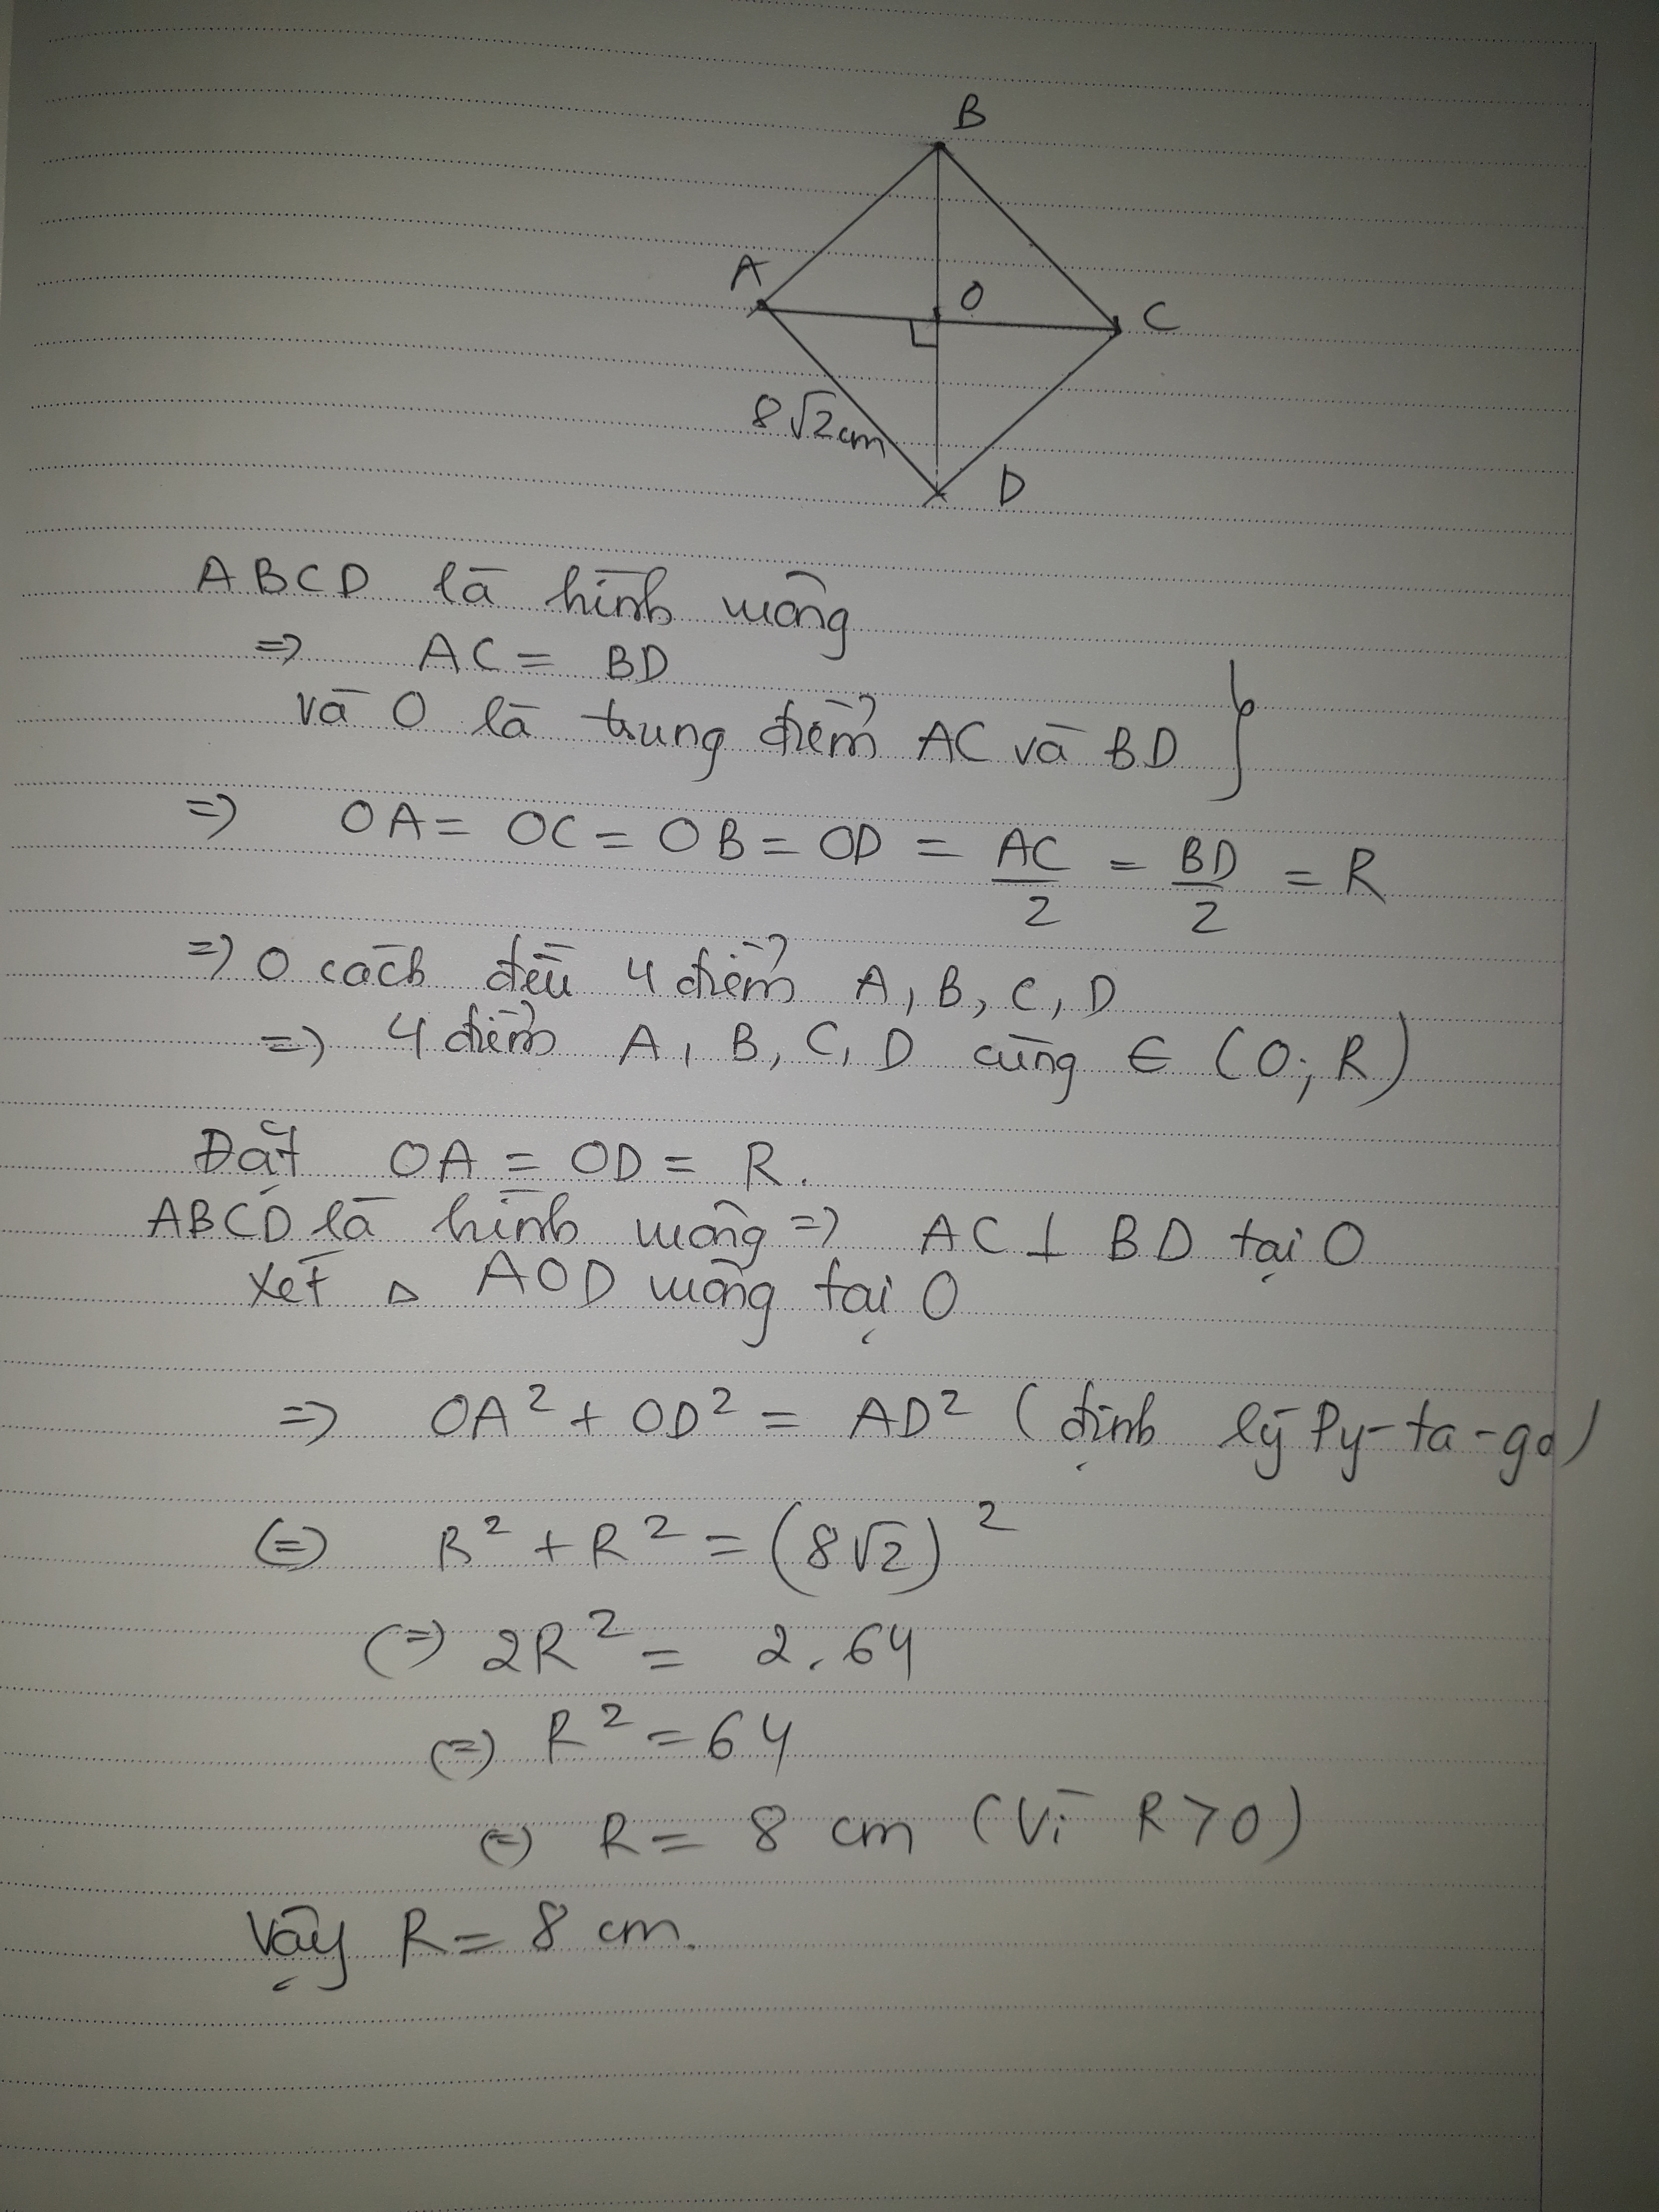 B
A
O
C
8√2cm
D
ABCD là hình vuông
=> AC = BD
và O là trung điểm AC và BD }
=> OA = OC = OB = OD = AC/2 = BD/2 = R
=> O cách đều 4 điểm A, B, C, D
=> 4 điểm A, B, C, D cùng ∈ (O; R)
Đặt OA = OD = R.
ABCD là hình vuông => AC ⊥ BD tại O
Xét △ AOD vuông tại O
=> OA² + OD² = AD² (định lý Py-ta-go)
(=) R² + R² = (8√2)²
(=) 2R² = 2.64
(=) R² = 64
(=) R = 8 cm (Vì R > 0)
Vậy R = 8 cm.